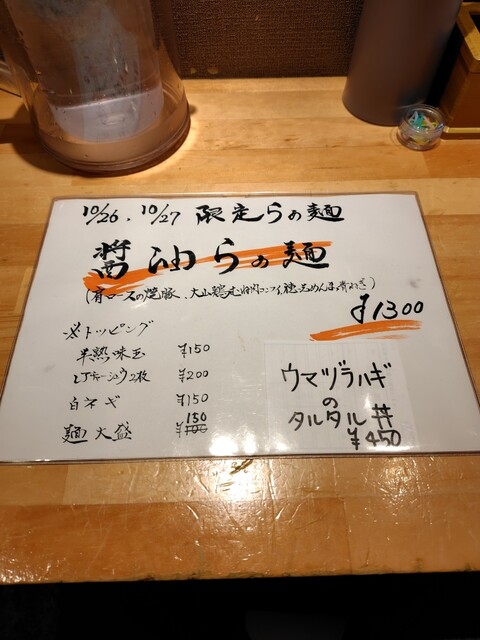 10/26.10/27 限定らの麺
醤油らの麺
(肩ロースの焼豚、大山鶏むね肉コンフィ、穂先めんま、青ねぎ)
¥1300
※トッピング
半熟味玉 ¥150
2枚 ¥200
白ネギ ¥150
麺大盛 150 ¥100
ウマヅラハギ
の
タルタル丼
¥450